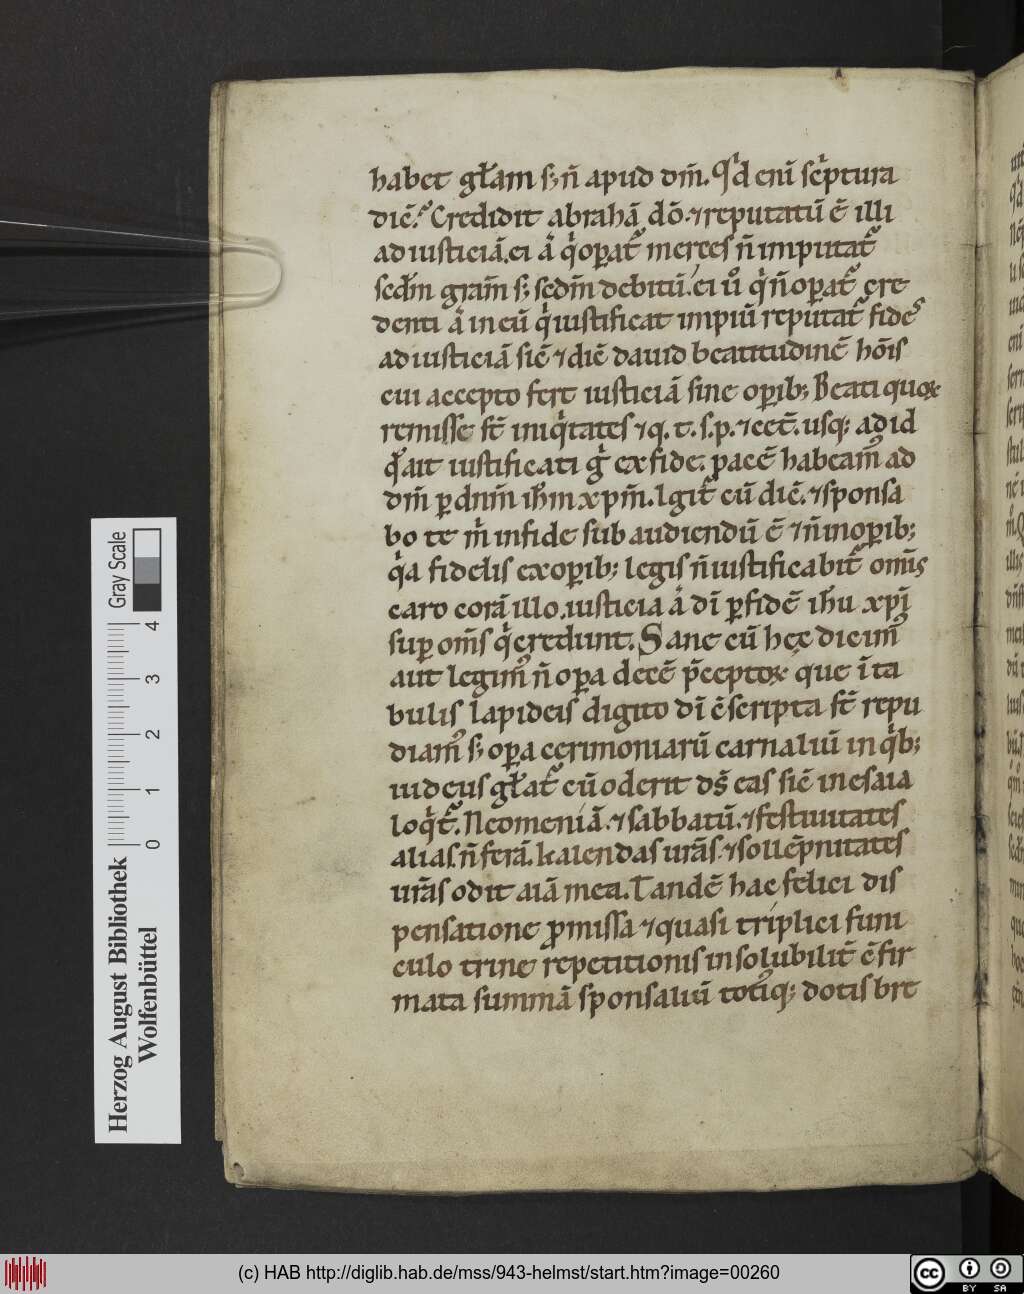 habet gl̄am s; n̄ apud dm̄. Qd̾ eni̅ sc̾ptura
dic̄? Credidit abrahā dō. ⁊ reputatū ē illi
ad iusticiā. ei aͥ qͥ oꝑat᷑ merces n̄ imputat᷑
secd̄m gram̄ s; secd̄m debitū. ei ůͦ qͥ n̄ oꝑat᷑ cre
denti aͥ in eū qͥ iustificat impiū reputat᷑ fides
ad iusticiā sic̄ ⁊ dic̄ dauid beatitudinē hōis
cui accepto fert iusticiā sine oꝑib; Beati quoꝝ
remisse st̄ iniqͥtates ⁊ q. t. s. p. ⁊ cet̄. usq; ad id
qͦ ait iustificati gͥ ex fide. pacē habeam᷒ ad
dm̄ ꝑ dnm̄ ih̄m xpm̄. lgit᷑ cū dic̄. ⁊ sponsa
bo te mͥ in fide subaudiendū ē ⁊ n̄ in oꝑib;
qͥa fidelis ex oꝑib; legis n̄ iustificabit᷑ omīs
caro corā illo. iusticia aͥ dī ꝑ fidē ih̄u xpi̅
suꝑ om̄s qͥ credunt. Sane cū hec dicim᷒
aut legim᷒ n̄ oꝑa decē p̄ceptoꝝ que ī ta
bulis lapideis digito dī ē scripta st̄ repu
diam᷒ s; oꝑa cerimoniarū carnaliū in qͥb;
iudeus gl̄at᷑ cū oderit ds̄ eas sic̄ in esaia
loqͥt᷑. Neomeniā. ⁊ sabbatū. ⁊ festiuitates
alias n̄ ferā. kalendas urās. ⁊ sollēpnitates
urās odit aīa mea. Tandē hac felici dis
pensatione ꝓmissa ⁊ quasi triplici funi
culo trine repetitionis insolubilit̄ ē fir
mata summā sponsaliū toti᷒q; dotis bre
Herzog August Bibliothek
Wolfenbüttel
Gray Scale
0 1 2 3 4
(c) HAB http://diglib.hab.de/mss/943-helmst/start.htm?image=00260
cc BY SA